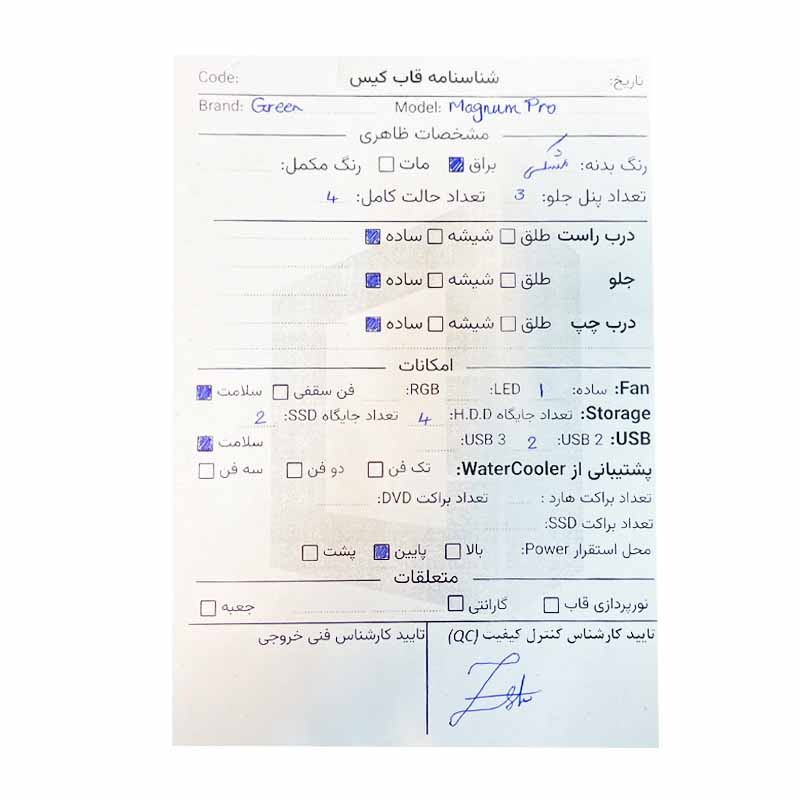 تاریخ: شناسنامه قاب کیس Code:
Brand: Green Model: Magnum Pro
مشخصات ظاهری
رنگ بدنه: مشکی براق مات رنگ مکمل:
تعداد پنل جلو: 3 تعداد حالت کامل: 4
درب راست طلق شیشه ساده
جلو طلق شیشه ساده
درب چپ طلق شیشه ساده
امکانات
Fan: ساده: 1 LED: RGB: فن سقفی سلامت
Storage: تعداد جایگاه H.D.D: 4 تعداد جایگاه SSD: 2
USB: USB 2: 2 USB 3: سلامت
پشتیبانی از WaterCooler: تک فن دو فن سه فن
تعداد براکت هارد : تعداد براکت DVD:
تعداد براکت SSD:
محل استقرار Power: بالا پایین پشت
متعلقات
نورپردازی قاب گارانتی جعبه
تایید کارشناس کنترل کیفیت (QC) تایید کارشناس فنی خروجی